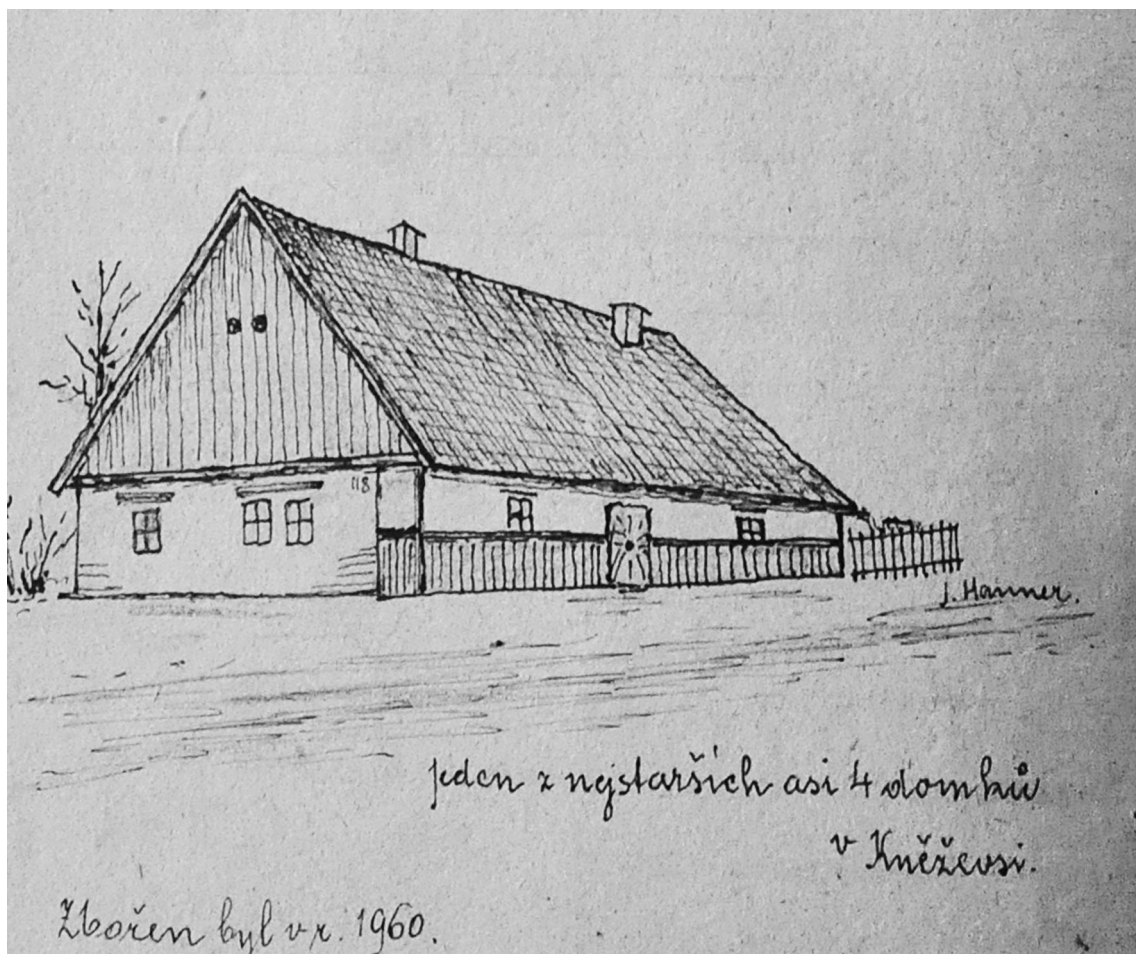 118
J. Hanner.
jeden z nejstarších asi 4 domků
v Kněževsi.
Zbořen byl v r. 1960.